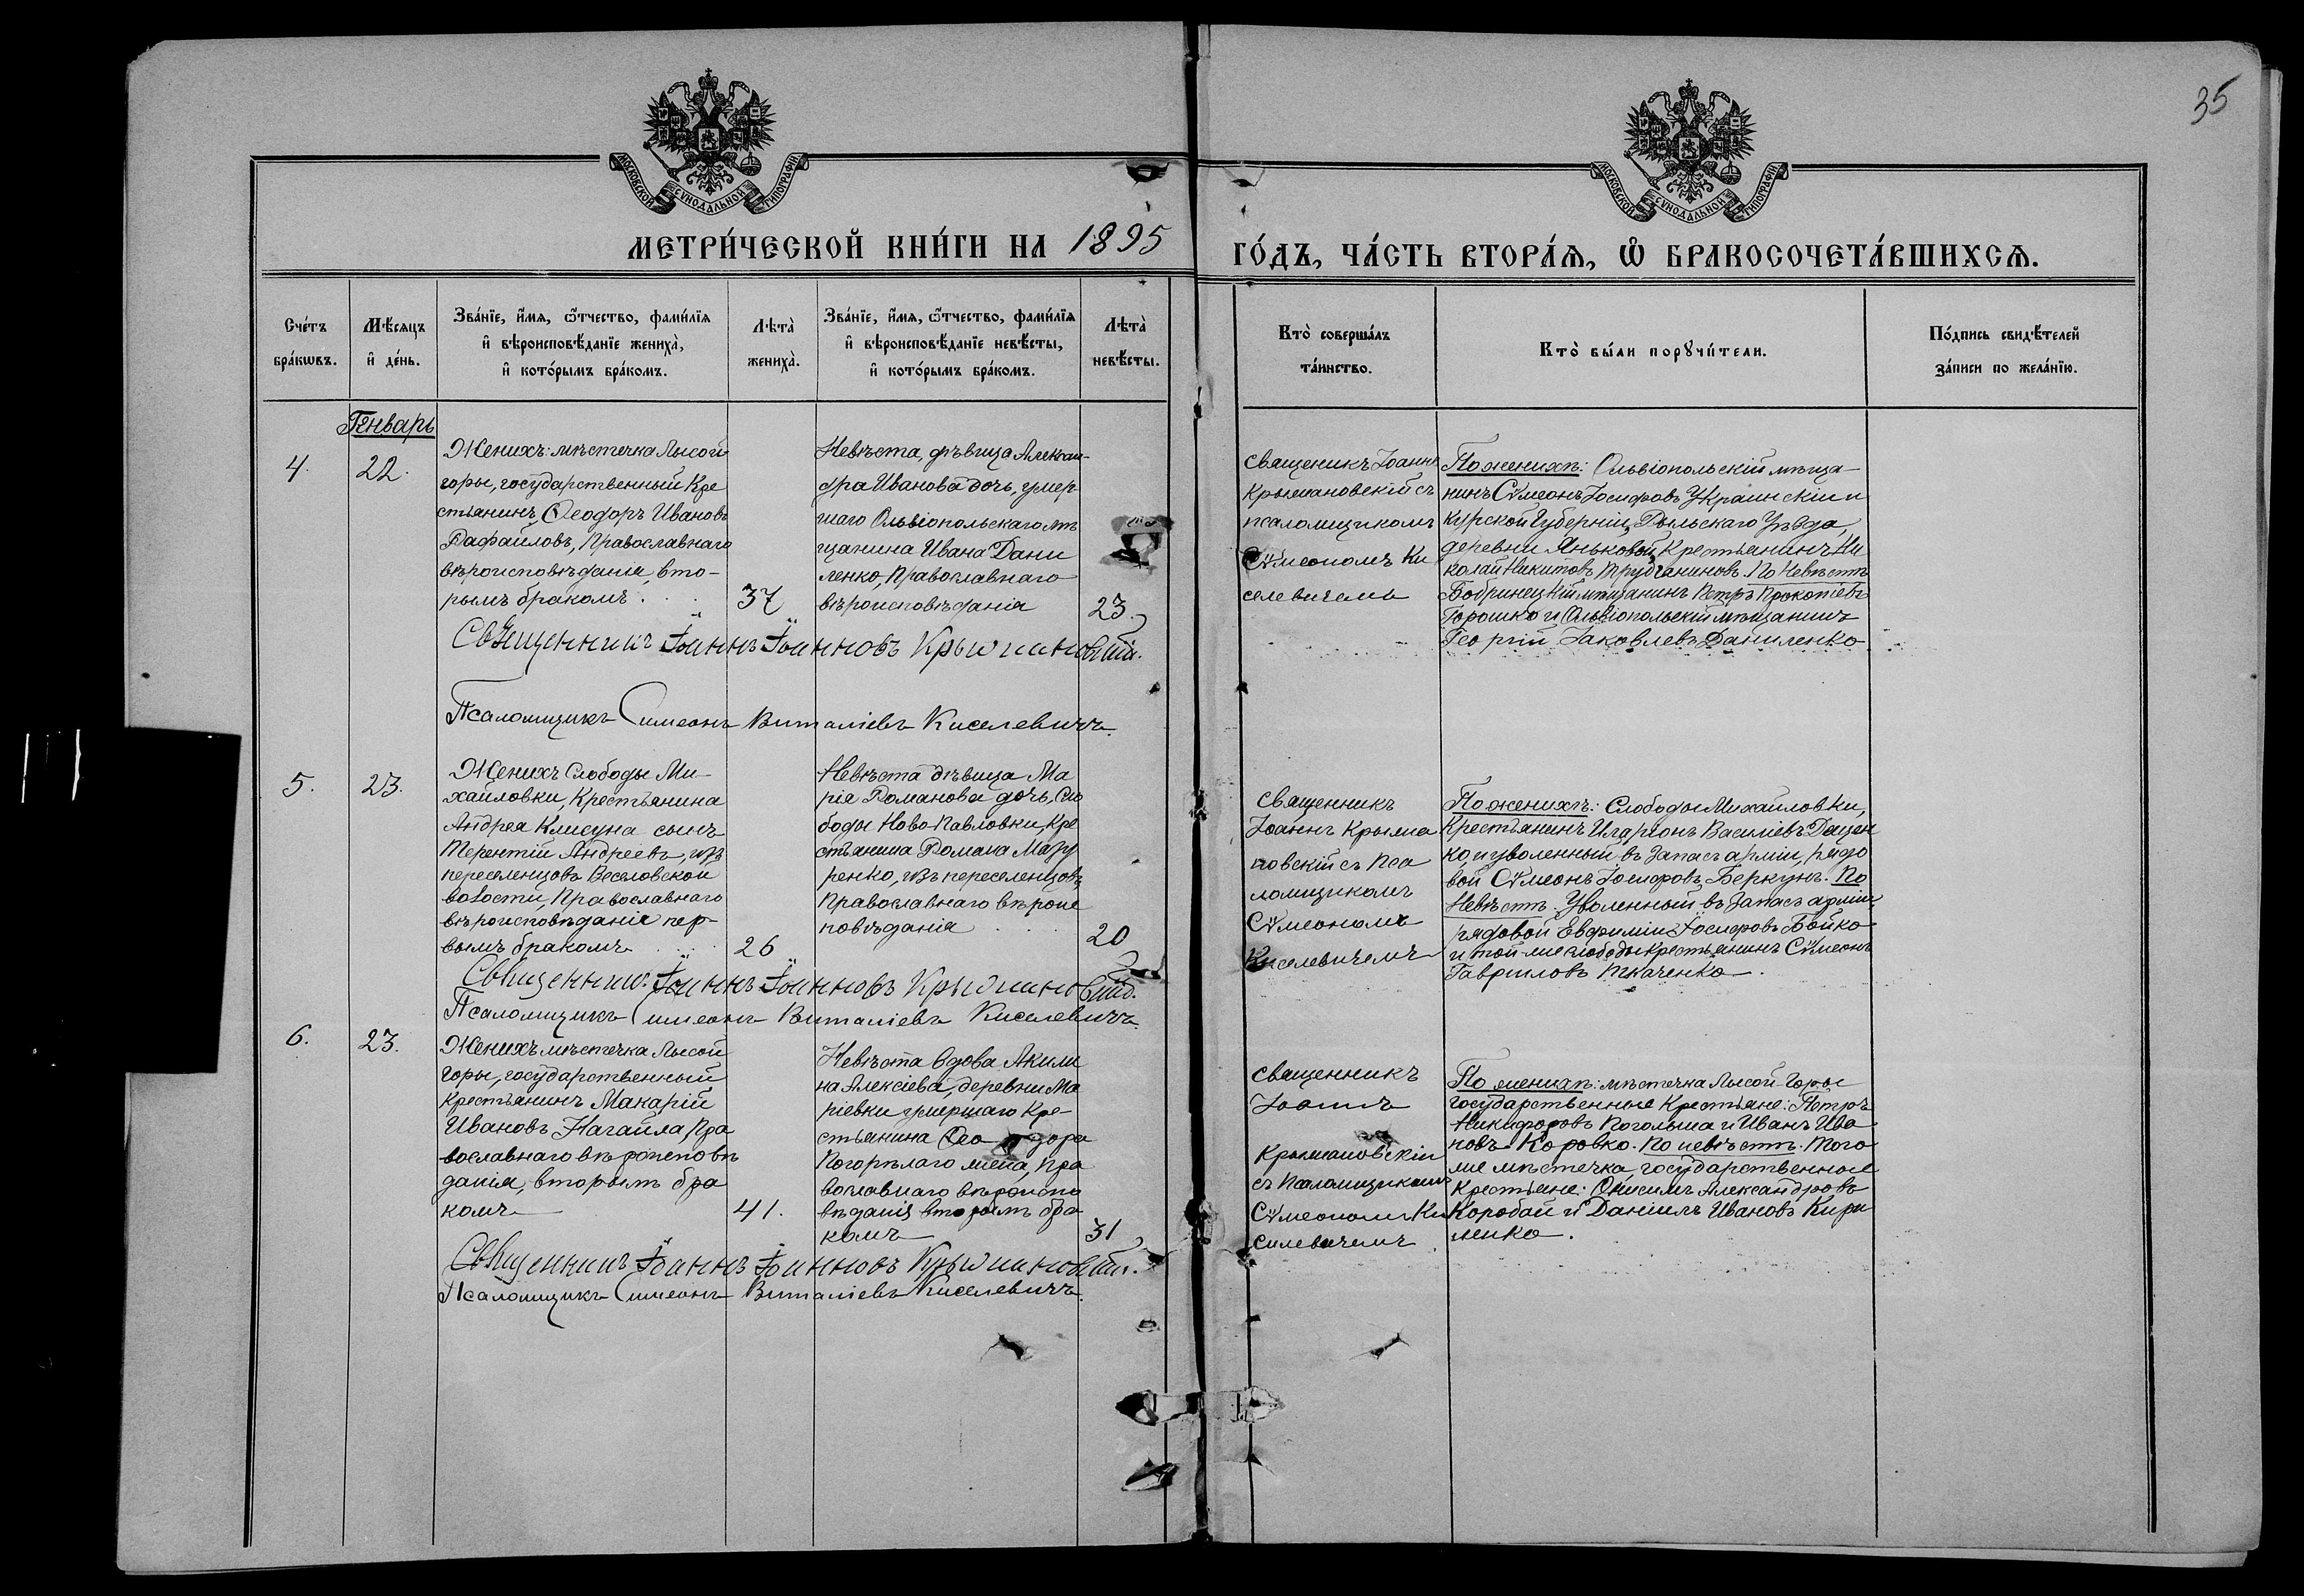 35
МОСКОВСКОЙ СѴНОДАЛЬНОЙ ТИПОГРАФІИ
МОСКОВСКОЙ СѴНОДАЛЬНОЙ ТИПОГРАФІИ
МЕТРИ́ЧЕСКОЙ КНИ́ГИ НА 1895
ГО́ДЪ, ЧА́СТЬ ВТОРА́Ѧ, Ѡ҆ БРАКОСОЧЕТА́ВШИХСѦ.
Сче́тъ
бра́кωвъ.
Мѣ́сяцъ
и҆ де́нь.
Зва́нїе, и҆́мя, ѻ҆́тчество, фами́лїя
и҆ вѣроисповѣ́данїе жениха̀,
и҆ кото́рымъ бра́комъ.
Лѣта̀
жениха̀.
Зва́нїе, и҆́мя, ѻ҆́тчество, фами́лїя
и҆ вѣроисповѣ́данїе невѣ́сты,
и҆ кото́рымъ бра́комъ.
Лѣта̀
невѣ́сты.
Кто̀ соверша́лъ
та́инство.
Кто̀ бы́ли порꙋчи́тели.
По́дпись свидѣ́телей
за́писи по жела́нїю.
Генварь
4.
22.
Женихъ: мѣстечка Лысой
горы, государственный Кре
стьянинъ Ѳеодоръ Ивановъ
Рафаиловъ, Православнаго
вѣроисповѣданія, вто-
рымъ бракомъ
37
Невѣста, дѣвица Алексан-
дра Иванова дочь, умер
шаго Ольвіопольскаго мѣ
щанина Ивана Дани
ленко, Православнаго
вѣроисповѣданія
23.
Священникъ Іоаннъ
Крыжановскій съ
псаломщикомъ
Сѵмеономъ Ки
селевичемъ
По женихѣ: Ольвіопольскій мѣща-
нинъ Сѵмеонъ Іосифовъ Украинскій и
Курской Губерніи, Рыльскаго Уѣзда,
деревни Яньковой, Крестьянинъ Ни
колай Никитовъ Трубчаниновъ. По Невѣстѣ
Бобринецкій мѣщанинъ Петръ Прокопіевъ
Горошко и Ольвіопольскій мѣщанинъ
Георгій Іаковлевъ Даниленко
Священникъ Іоаннъ Іоанновъ Крыжановскій.
Псаломщикъ Симеонъ Виталіевъ Киселевичъ.
5.
23.
Женихъ Слободы Ми-
хайловки, Крестьянина
Андрея Клисуна сынъ
Терентій Андреевъ, изъ
переселенцовъ Веселовской
волости, Православнаго
вѣроисповѣданія пер-
вымъ бракомъ
26
Невѣста дѣвица Ма
рія Романова дочь, Сло
боды Ново-Павловки, Кре
стьянина Романа Мазу
ренко, изъ переселенцовъ,
Православнаго вѣроис
повѣданія
20
Священникъ
Іоаннъ Крыжа
новскій съ Пса
ломщикомъ
Сѵмеономъ
Киселевичемъ
По женихѣ: Слободы Михайловки,
Крестьянинъ Иларіонъ Василіевъ Дацен
ко, и уволенный въ запасъ арміи, рядо
вой Сѵмеонъ Іосифовъ Беркунъ. По
Невѣстѣ. Уволенный въ Запасъ арміи,
рядовой Евфимій Іосифовъ Бойко
и той-же слободы крестьянинъ Сѵмеонъ
Гавриловъ Ткаченко.
Священникъ Іоаннъ Іоанновъ Крыжановскій.
Псаломщикъ Симеонъ Виталіевъ Киселевичъ
6.
23.
Женихъ мѣстечка Лысой
Горы, государственный
Крестьянинъ Макарій
Ивановъ Нагайла, Пра
вославнаго вѣроисповѣ
данія, вторымъ бра
комъ
41.
Невѣста вдова Акили
на Алексіева, деревни Ма
ріевки умершаго Кре-
стьянина Ѳеодора
Погорѣлаго жена, Пра
вославнаго вѣроиспо
вѣданія вторымъ бра
комъ
31
Священникъ
Іоаннъ
Крыжановскій
съ Псаломщикомъ
Сѵмеономъ Ки
силевичемъ
По женихѣ: мѣстечка Лысой-Горы
Государственные Крестьяне: Петръ
Никифоровъ Поголыша и Иванъ Ива
новъ Коровко. По невѣстѣ. Того-
же мѣстечка, государственные
Крестьяне: Онисимъ Александровъ
Коробай и Даніилъ Ивановъ Кири
ленко.
Священникъ Іоаннъ Іоанновъ Крыжановскій.
Псаломщикъ Симеонъ Виталіевъ Киселевичъ.